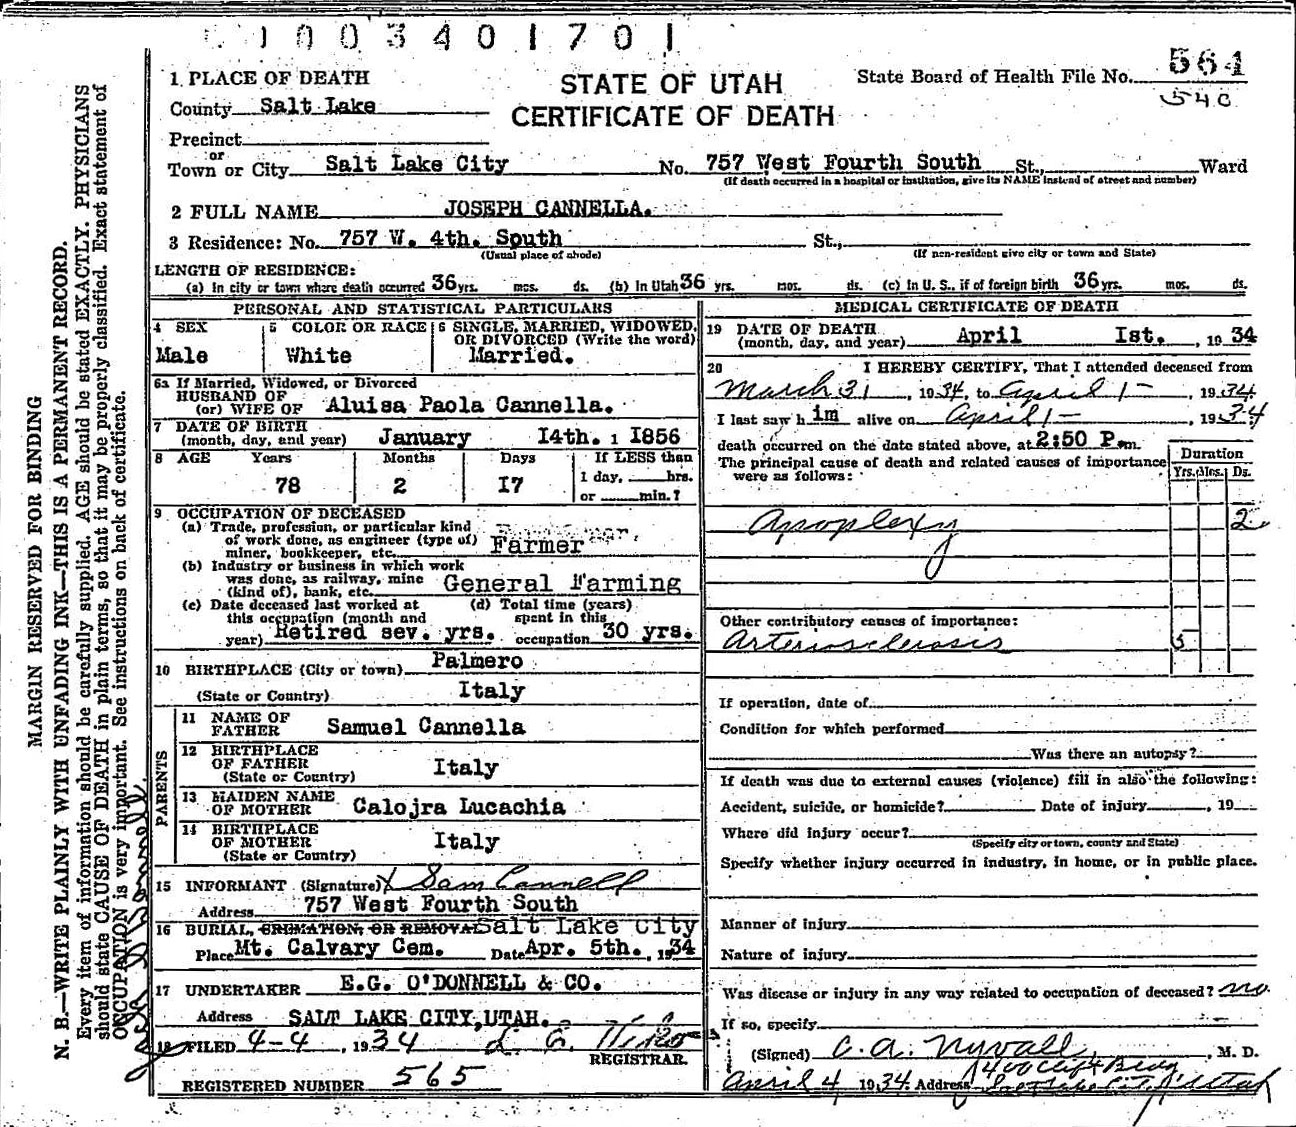 1003401701
1 PLACE OF DEATH
STATE OF UTAH
CERTIFICATE OF DEATH
State Board of Health File No. 564
54c
County Salt Lake
Precinct
or
Town or City Salt Lake City No. 757 West Fourth South St., Ward
(If death occurred in a hospital or institution, give its NAME instead of street and number)
2 FULL NAME JOSEPH CANNELLA.
3 Residence: No. 757 W. 4th. South St.,
(Usual place of abode) (If non-resident give city or town and State)
LENGTH OF RESIDENCE:
(a) In city or town where death occurred 36 yrs. mos. ds. (b) In Utah 36 yrs. mos. ds. (c) In U. S., if of foreign birth 36 yrs. mos. ds.
PERSONAL AND STATISTICAL PARTICULARS
4 SEX
Male
5 COLOR OR RACE
White
6 SINGLE, MARRIED, WIDOWED, OR DIVORCED (Write the word)
Married.
6a If Married, Widowed, or Divorced
HUSBAND OF
(or) WIFE OF Aluisa Paola Cannella.
7 DATE OF BIRTH
(month, day, and year) January I4th. 1 I856
8 AGE Years Months Days If LESS than
78 2 I7 1 day, hrs.
or min.?
9 OCCUPATION OF DECEASED
(a) Trade, profession, or particular kind
of work done, as engineer (type of)
miner, bookkeeper, etc. Farmer
(b) Industry or business in which work
was done, as railway, mine
(kind of), bank, etc. General Farming
(c) Date deceased last worked at
this occupation (month and
year) Retired sev. yrs.
(d) Total time (years)
spent in this
occupation 30 yrs.
10 BIRTHPLACE (City or town) Palmero
(State or Country) Italy
PARENTS
11 NAME OF
FATHER Samuel Cannella
12 BIRTHPLACE
OF FATHER
(State or Country) Italy
13 MAIDEN NAME
OF MOTHER Calojra Lucachia
14 BIRTHPLACE
OF MOTHER
(State or Country) Italy
15 INFORMANT (Signature) X Sam Cannell
Address 757 West Fourth South
16 BURIAL, CREMATION, OR REMOVAL Salt Lake City
Place Mt. Calvary Cem. Date Apr. 5th. , 1934
17 UNDERTAKER E.G. O'DONNELL & CO.
Address SALT LAKE CITY, UTAH.
18 FILED 4-4, 1934
REGISTRAR.
REGISTERED NUMBER 565
MEDICAL CERTIFICATE OF DEATH
19 DATE OF DEATH
(month, day, and year) April Ist. , 1934
20 I HEREBY CERTIFY, That I attended deceased from
March 31, 1934, to April 1-, 1934
I last saw him alive on April 1-, 1934
death occurred on the date stated above, at 2:50 P.m.
The principal cause of death and related causes of importance
were as follows:
Duration
Yrs. Mos. Ds.
Apoplexy 2
Other contributory causes of importance:
Arteriosclerosis 5
If operation, date of
Condition for which performed
Was there an autopsy?
If death was due to external causes (violence) fill in also the following:
Accident, suicide, or homicide? Date of injury , 19
Where did injury occur?
(Specify city or town, county and State)
Specify whether injury occurred in industry, in home, or in public place.
Manner of injury
Nature of injury
Was disease or injury in any way related to occupation of deceased? no.
If so, specify
(Signed) C. A. Nyvall, M. D.
April 4, 1934. Address Salt Lake City, Utah
MARGIN RESERVED FOR BINDING
N. B.—WRITE PLAINLY WITH UNFADING INK—THIS IS A PERMANENT RECORD.
Every item of information should be carefully supplied. AGE should be stated EXACTLY. PHYSICIANS
should state CAUSE OF DEATH in plain terms, so that it may be properly classified. Exact statement of
OCCUPATION is very important. See instructions on back of certificate.